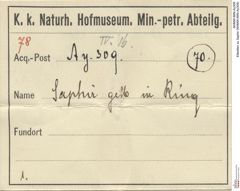 K. k. Naturh. Hofmuseum. Min.-petr. Abteilg.
78
IV. 16.
Acq.-Post A.y. 309.
70.
Name Saphir gelb in Ring
Fundort
1.